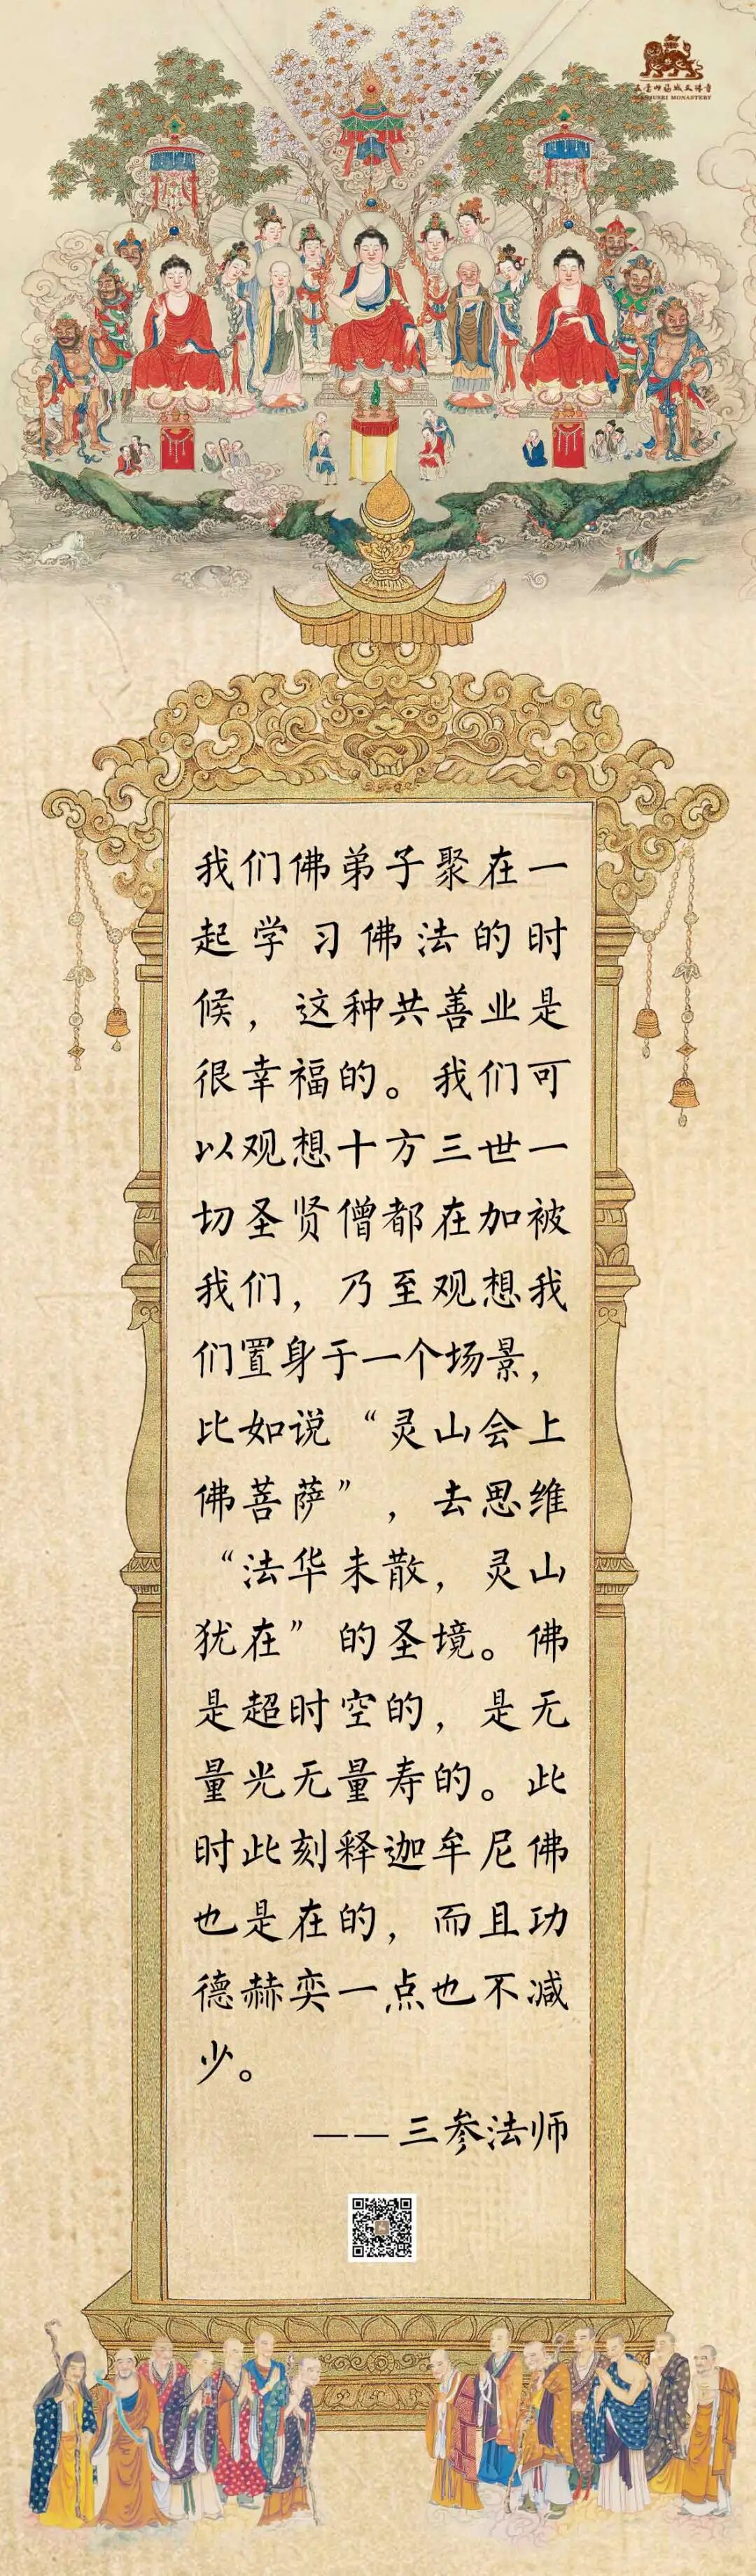 我们佛弟子聚在一
起学习佛法的时
候，这种共善业是
很幸福的。我们可
以观想十方三世一
切圣贤僧都在加被
我们，乃至观想我
们置身于一个场景，
比如说“灵山会上
佛菩萨”，去思维
“法华未散，灵山
犹在”的圣境。佛
是超时空的，是无
量光无量寿的。此
时此刻释迦牟尼佛
也是在的，而且功
德赫奕一点也不减
少。
——三参法师